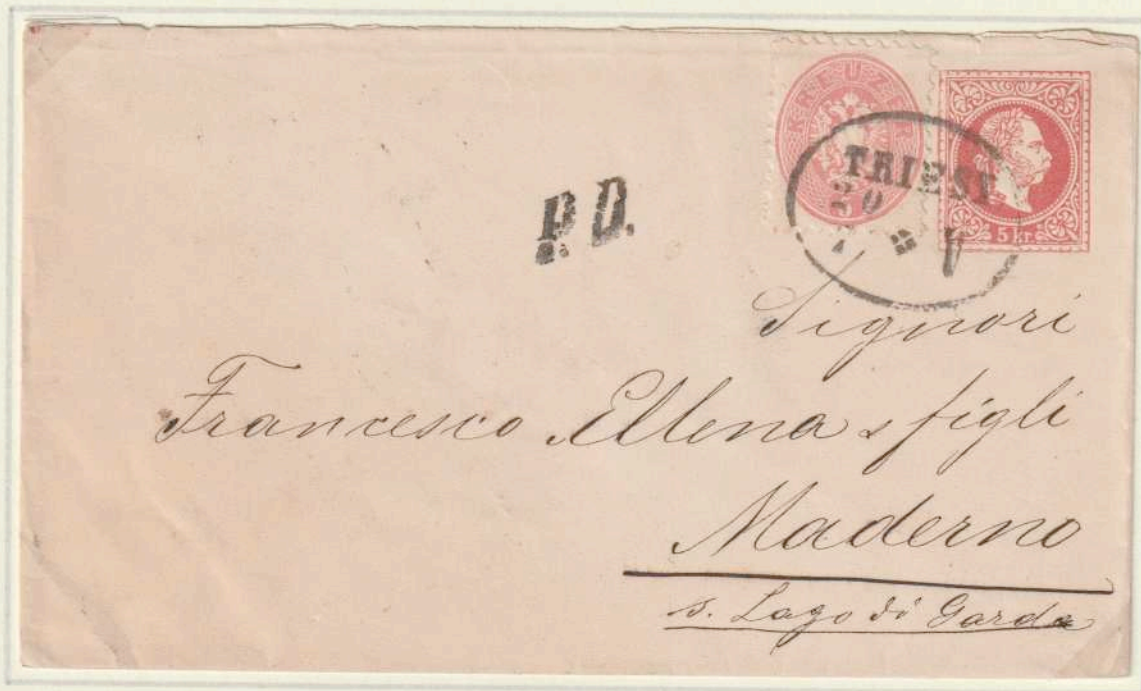 KREUZER
5
TRIEST
20
7
5 kr.
P.D.
Signori
Francesco Ellena & figli
Maderno
s. Lago di Garda